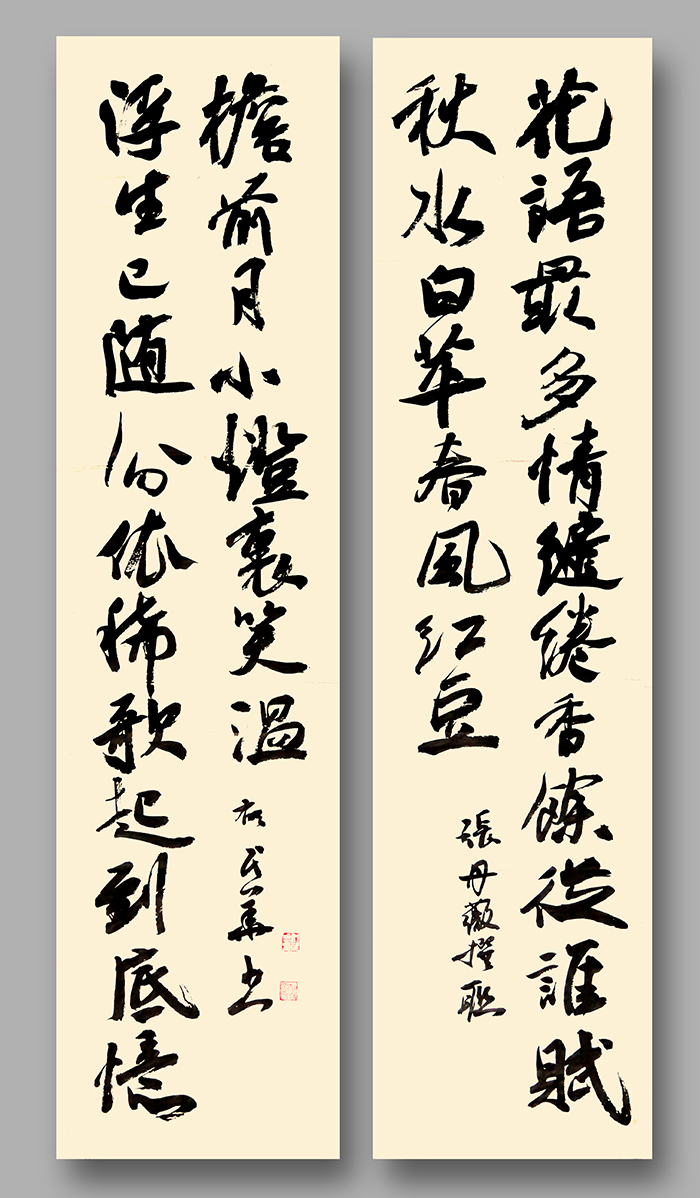 花語最多情繾綣香餘從誰賦
秋水白苹春風紅豆
張丹薇撰聯
浮生已随份依稀歌起到底憶
檐前月小燈裏笑温
民華书